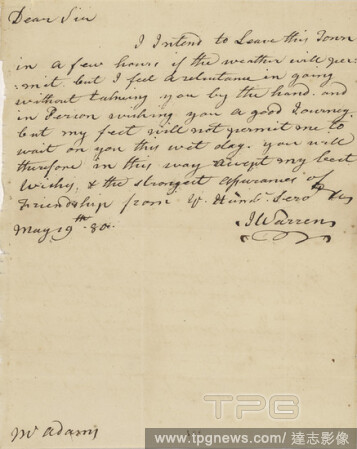 Dear Sir
I Intend to Leave this Town
in a few hours if the weather will per-
mit. but I feel a reluctance in going
without takeing you by the hand. and
in Person wishing you a good Journey.
but my feet will not permit me to
wait on you this wet day. you will
therefore in this way accept my best
Wishes, & the strongest assurances of
Friendship from Yr. Humb. Serv
JWarren
May 19th 80.
Mr Adams
TPG
www.tpgnews.com / 達志影像